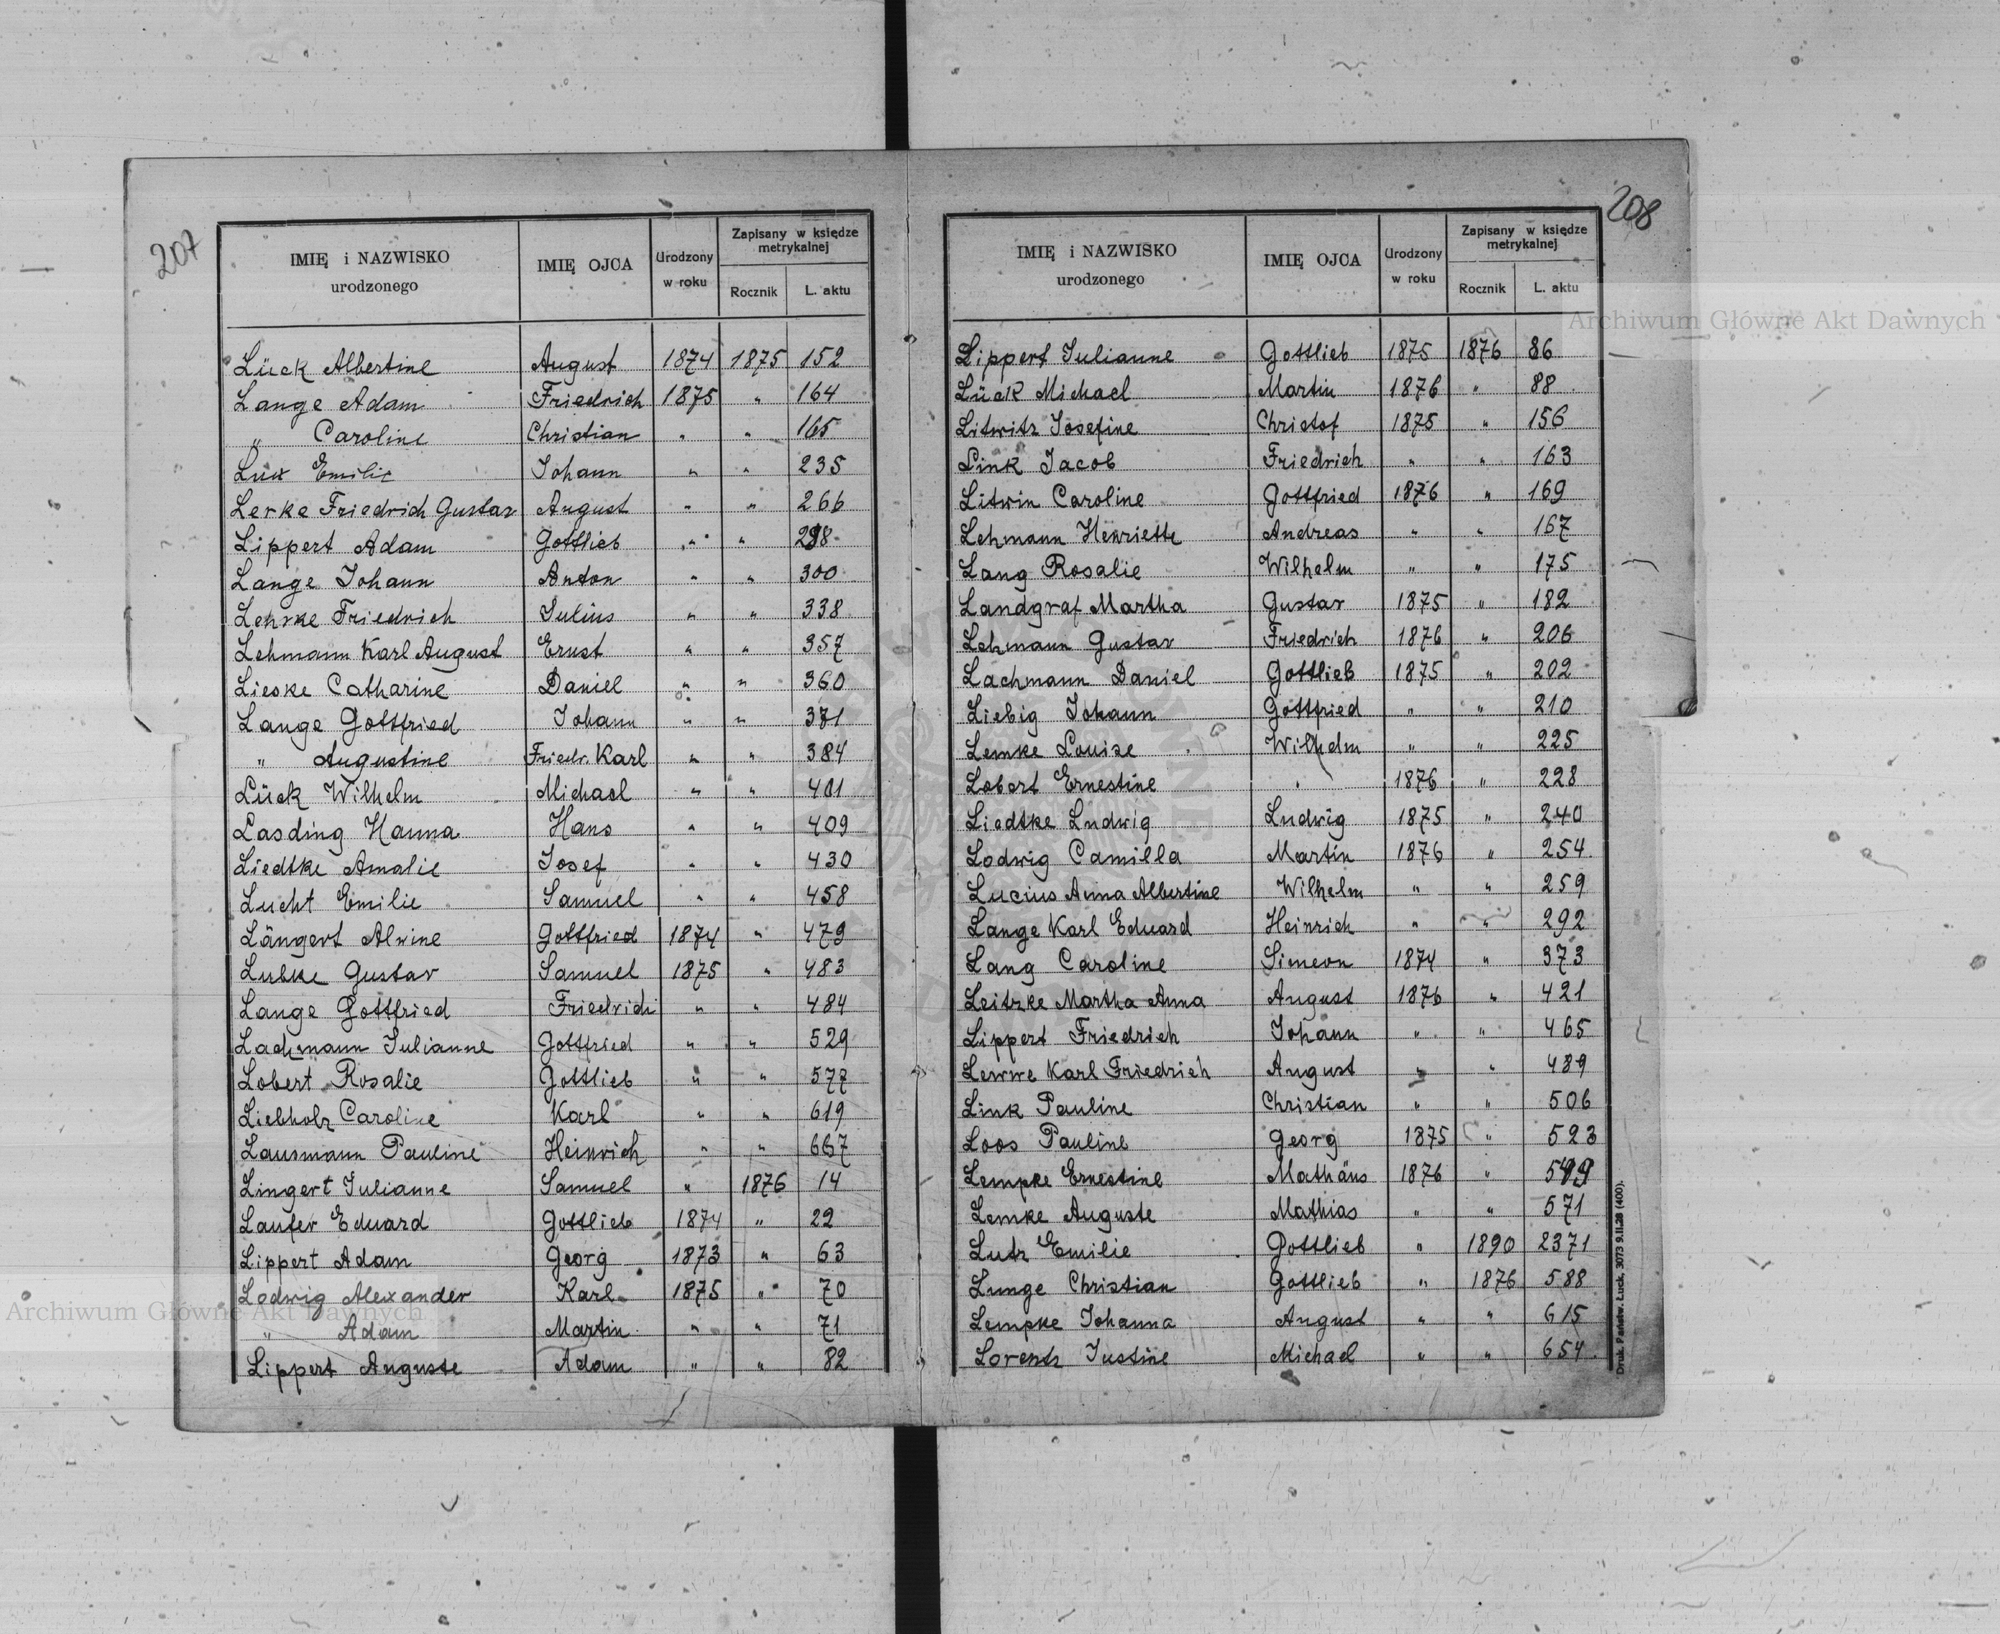 207
IMIĘ i NAZWISKO urodzonego | IMIĘ OJCA | Urodzony w roku | Zapisany w księdze metrykalnej
Rocznik | L. aktu
Lück Albertine | August | 1874 | 1875 | 152
Lange Adam | Friedrich | 1875 | " | 164
" Caroline | Christian | " | " | 165
Lux Emilie | Johann | " | " | 235
Lerke Friedrich Gustav | August | " | " | 266
Lippert Adam | Gottlieb | " | " | 298
Lange Johann | Anton | " | " | 300
Lehrke Friedrich | Julius | " | " | 338
Lehmann Karl August | Ernst | " | " | 357
Lieske Catharine | Daniel | " | " | 360
Lange Gottfried | Johann | " | " | 381
" Augustine | Friedr. Karl | " | " | 384
Lück Wilhelm | Michael | " | " | 401
Lasding Hanna | Hans | " | " | 409
Liedtke Amalie | Josef | " | " | 430
Lucht Emilie | Samuel | " | " | 458
Längert Alwine | Gottfried | 1874 | " | 479
Lubke Gustav | Samuel | 1875 | " | 483
Lange Gottfried | Friedrich | " | " | 484
Lachmann Julianne | Gottfried | " | " | 529
Lobert Rosalie | Gottlieb | " | " | 577
Liebholz Caroline | Karl | " | " | 619
Lausmann Pauline | Heinrich | " | " | 667
Lingert Julianne | Samuel | " | 1876 | 14
Laufer Eduard | Gottlieb | 1874 | " | 22
Lippert Adam | Georg | 1873 | " | 63
Lodwig Alexander | Karl | 1875 | " | 70
" Adam | Martin | " | " | 71
Lippert Auguste | Adam | " | " | 82
208
IMIĘ i NAZWISKO urodzonego | IMIĘ OJCA | Urodzony w roku | Zapisany w księdze metrykalnej
Rocznik | L. aktu
Lippert Julianne | Gottlieb | 1875 | 1876 | 86
Lück Michael | Martin | 1876 | " | 88
Litwitz Josefine | Christof | 1875 | " | 156
Link Jacob | Friedrich | " | " | 163
Litwin Caroline | Gottfried | 1876 | " | 169
Lehmann Henriette | Andreas | " | " | 167
Lang Rosalie | Wilhelm | " | " | 175
Landgraf Martha | Gustav | 1875 | " | 182
Lehmann Gustav | Friedrich | 1876 | " | 206
Lachmann Daniel | Gottlieb | 1875 | " | 202
Liebig Johann | Gottfried | " | " | 210
Lemke Louise | Wilhelm | " | " | 225
Lobert Ernestine | " | 1876 | " | 228
Liedtke Ludwig | Ludwig | 1875 | " | 240
Lodwig Camilla | Martin | 1876 | " | 254
Lucius Anna Albertine | Wilhelm | " | " | 259
Lange Karl Eduard | Heinrich | " | " | 292
Lang Caroline | Simeon | 1874 | " | 373
Leitzke Martha Anna | August | 1876 | " | 421
Lippert Friedrich | Johann | " | " | 465
Lewwe Karl Friedrich | August | " | " | 489
Link Pauline | Christian | " | " | 506
Loos Pauline | Georg | 1875 | " | 523
Lempke Ernestine | Mathäus | 1876 | "
Lemke Auguste | Mathias | " | " | 571
Lutz Emilie | Gottlieb | " | 1890 | 2371
Lunge Christian | Gottlieb | " | 1876 | 588
Lempke Johanna | August | " | " | 615
Lorentz Justine | Michael | " | " | 654
Druk. Państw. Łuck. 3073 9.II.28 (400).
Archiwum Główne Akt Dawnych
Archiwum Główne Akt Dawnych